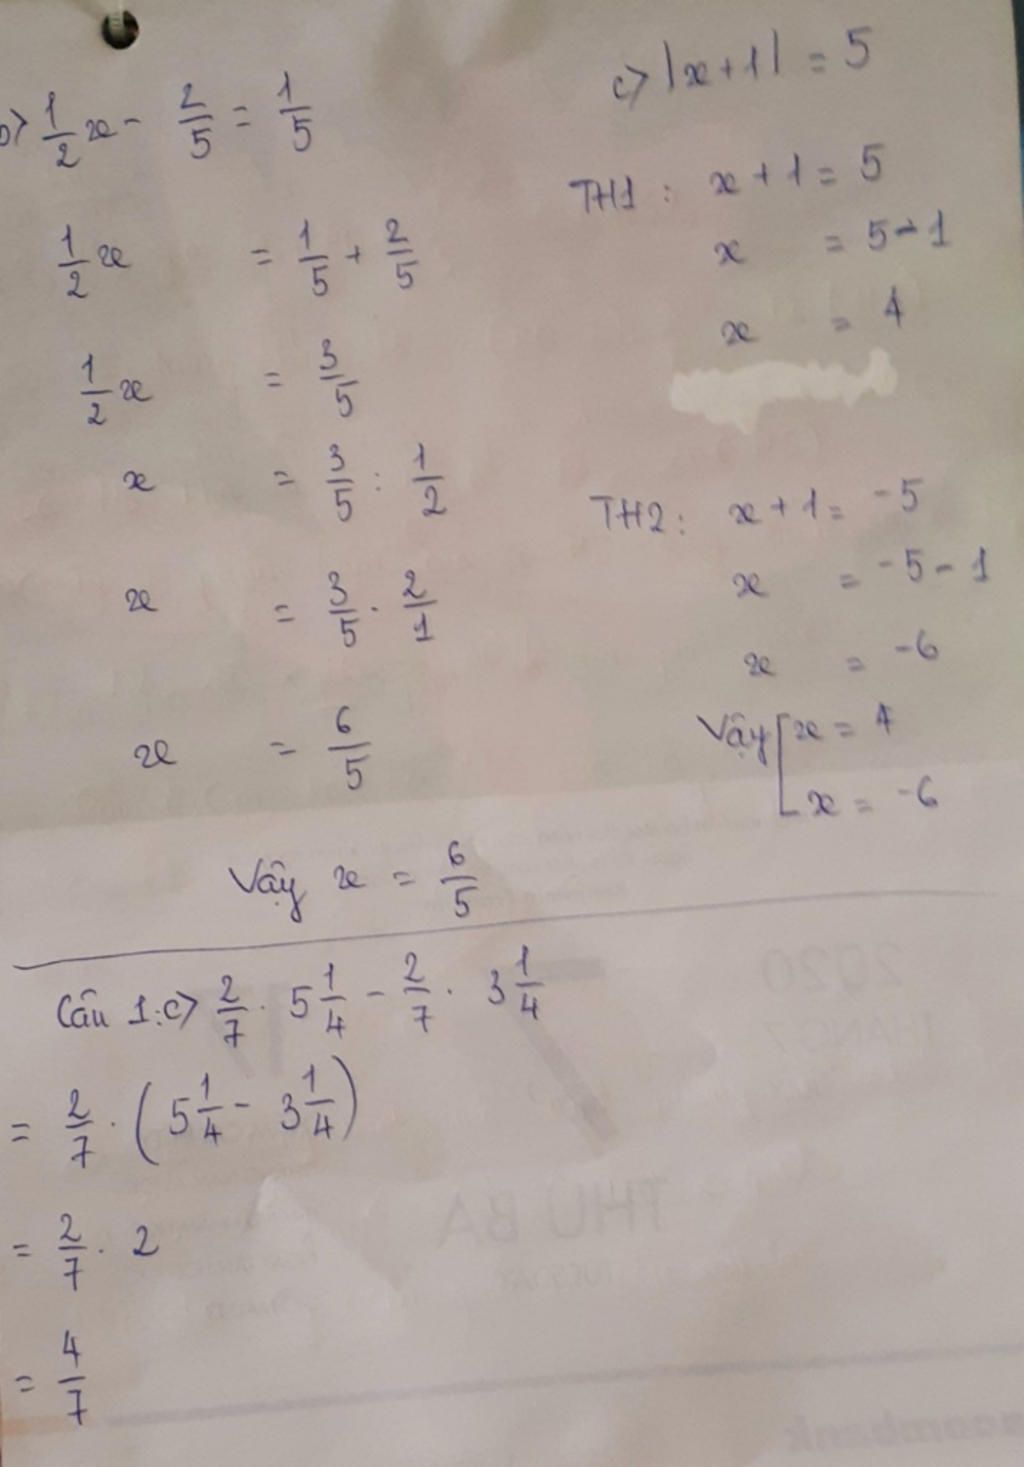 b) 1/2 x - 2/5 = 1/5
1/2 x = 1/5 + 2/5
1/2 x = 3/5
x = 3/5 : 1/2
x = 3/5 . 2/1
x = 6/5
Vậy x = 6/5
c) |x+1| = 5
TH1: x + 1 = 5
x = 5 - 1
x = 4
TH2: x + 1 = -5
x = -5 - 1
x = -6
Vậy [ x = 4
x = -6
Câu 1: c) 2/7 . 5 1/4 - 2/7 . 3 1/4
= 2/7 . (5 1/4 - 3 1/4)
= 2/7 . 2
= 4/7
2020
THÁNG 7
THỨ BA
TUESDAY